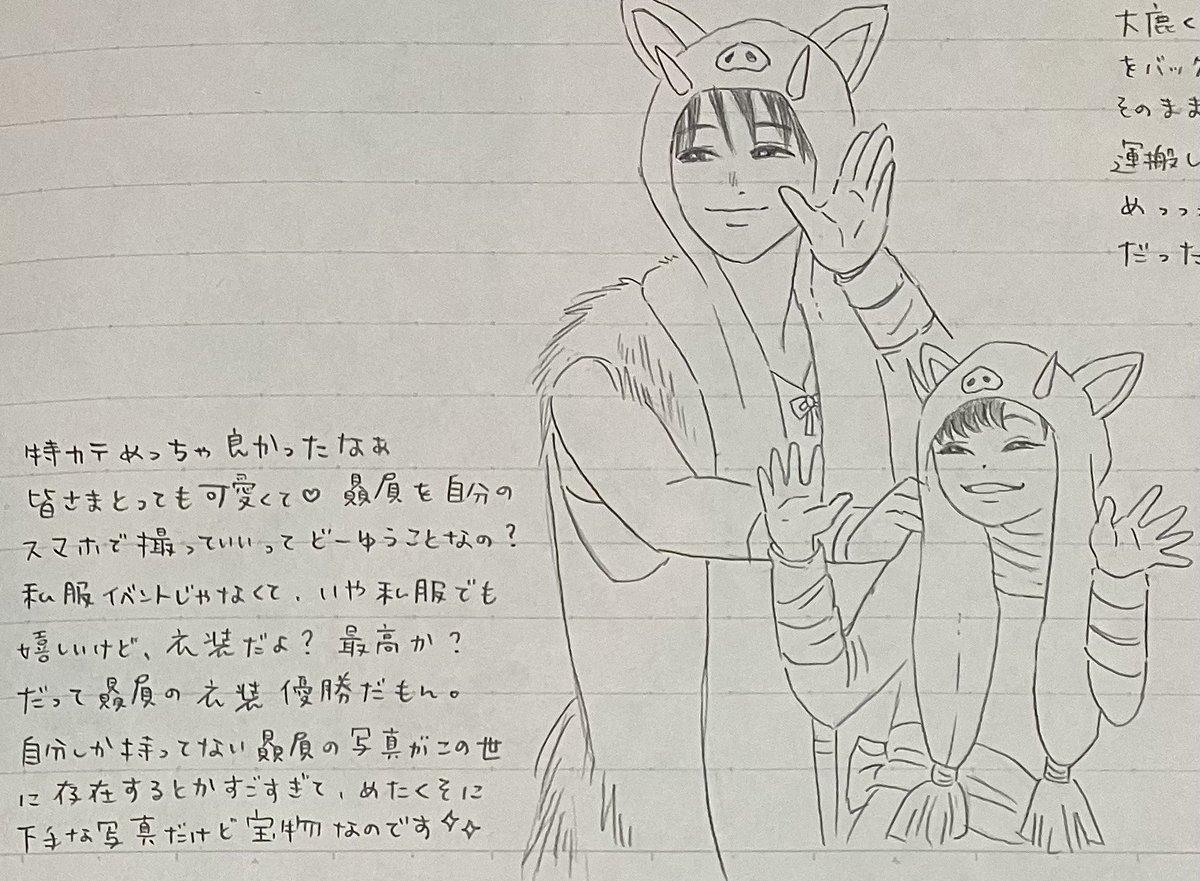 特カテめっちゃ良かったなぁ
皆さまとっても可愛くて♡ 贔屓を自分の
スマホで撮っていいってどーゆうことなの?
私服イベントじゃなくて、いや私服でも
嬉しいけど、衣装だよ? 最高か?
だって贔屓の衣装優勝だもん。
自分しか持ってない贔屓の写真がこの世
に存在するとかすごすぎて、めたくそに
下手な写真だけど宝物なのです✧✧
大鹿く
をバック
そのまま
運搬し
めっっ
だった